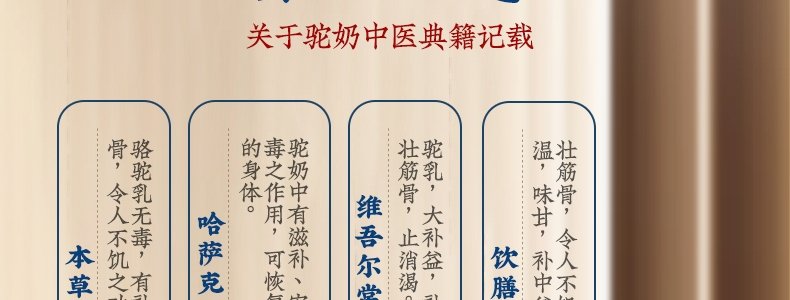 关于驼奶中医典籍记载
壮筋骨，令人不
温，味甘，补中
饮膳
驼乳，大补益，
壮筋骨，止消渴。
维吾尔
驼奶中有滋补、
毒之作用，可恢
的身体。
哈萨克
骆驼乳无毒，有
骨，令人不饥之
本草